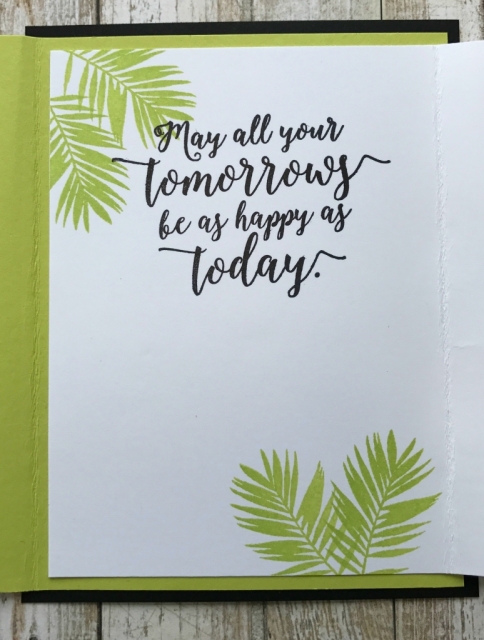 May all your
tomorrows
be as happy as
today.